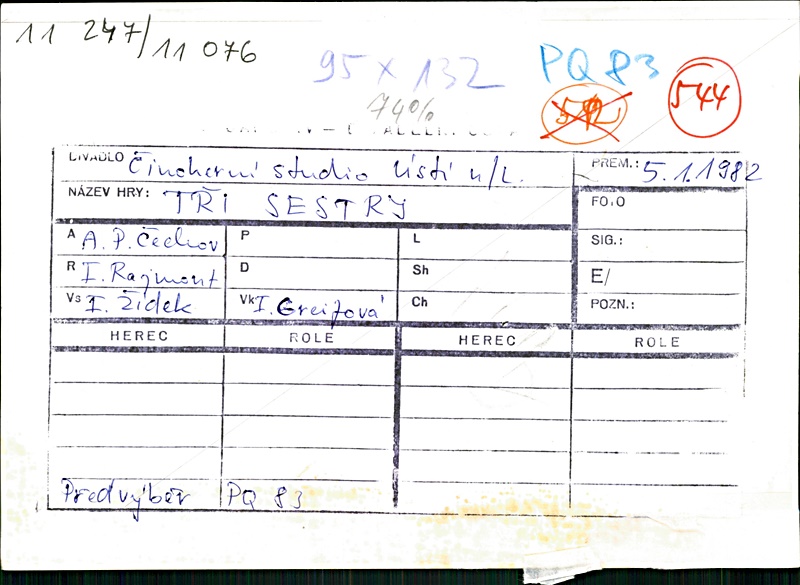 11 247/11 076
95 x 132
74%
PQ 83
544
DIVADLO Činoherní studio Ústí n/L.
PREM.: 5.1.1982
NÁZEV HRY: TŘI SESTRY
FOTO
A A. P. Čechov P L
SIG.:
R I. Rajmont D Sh
E/
Vs I. Žídek Vk I. Greifová Ch
POZN.:
HEREC ROLE HEREC ROLE
Předvýběr PQ 83